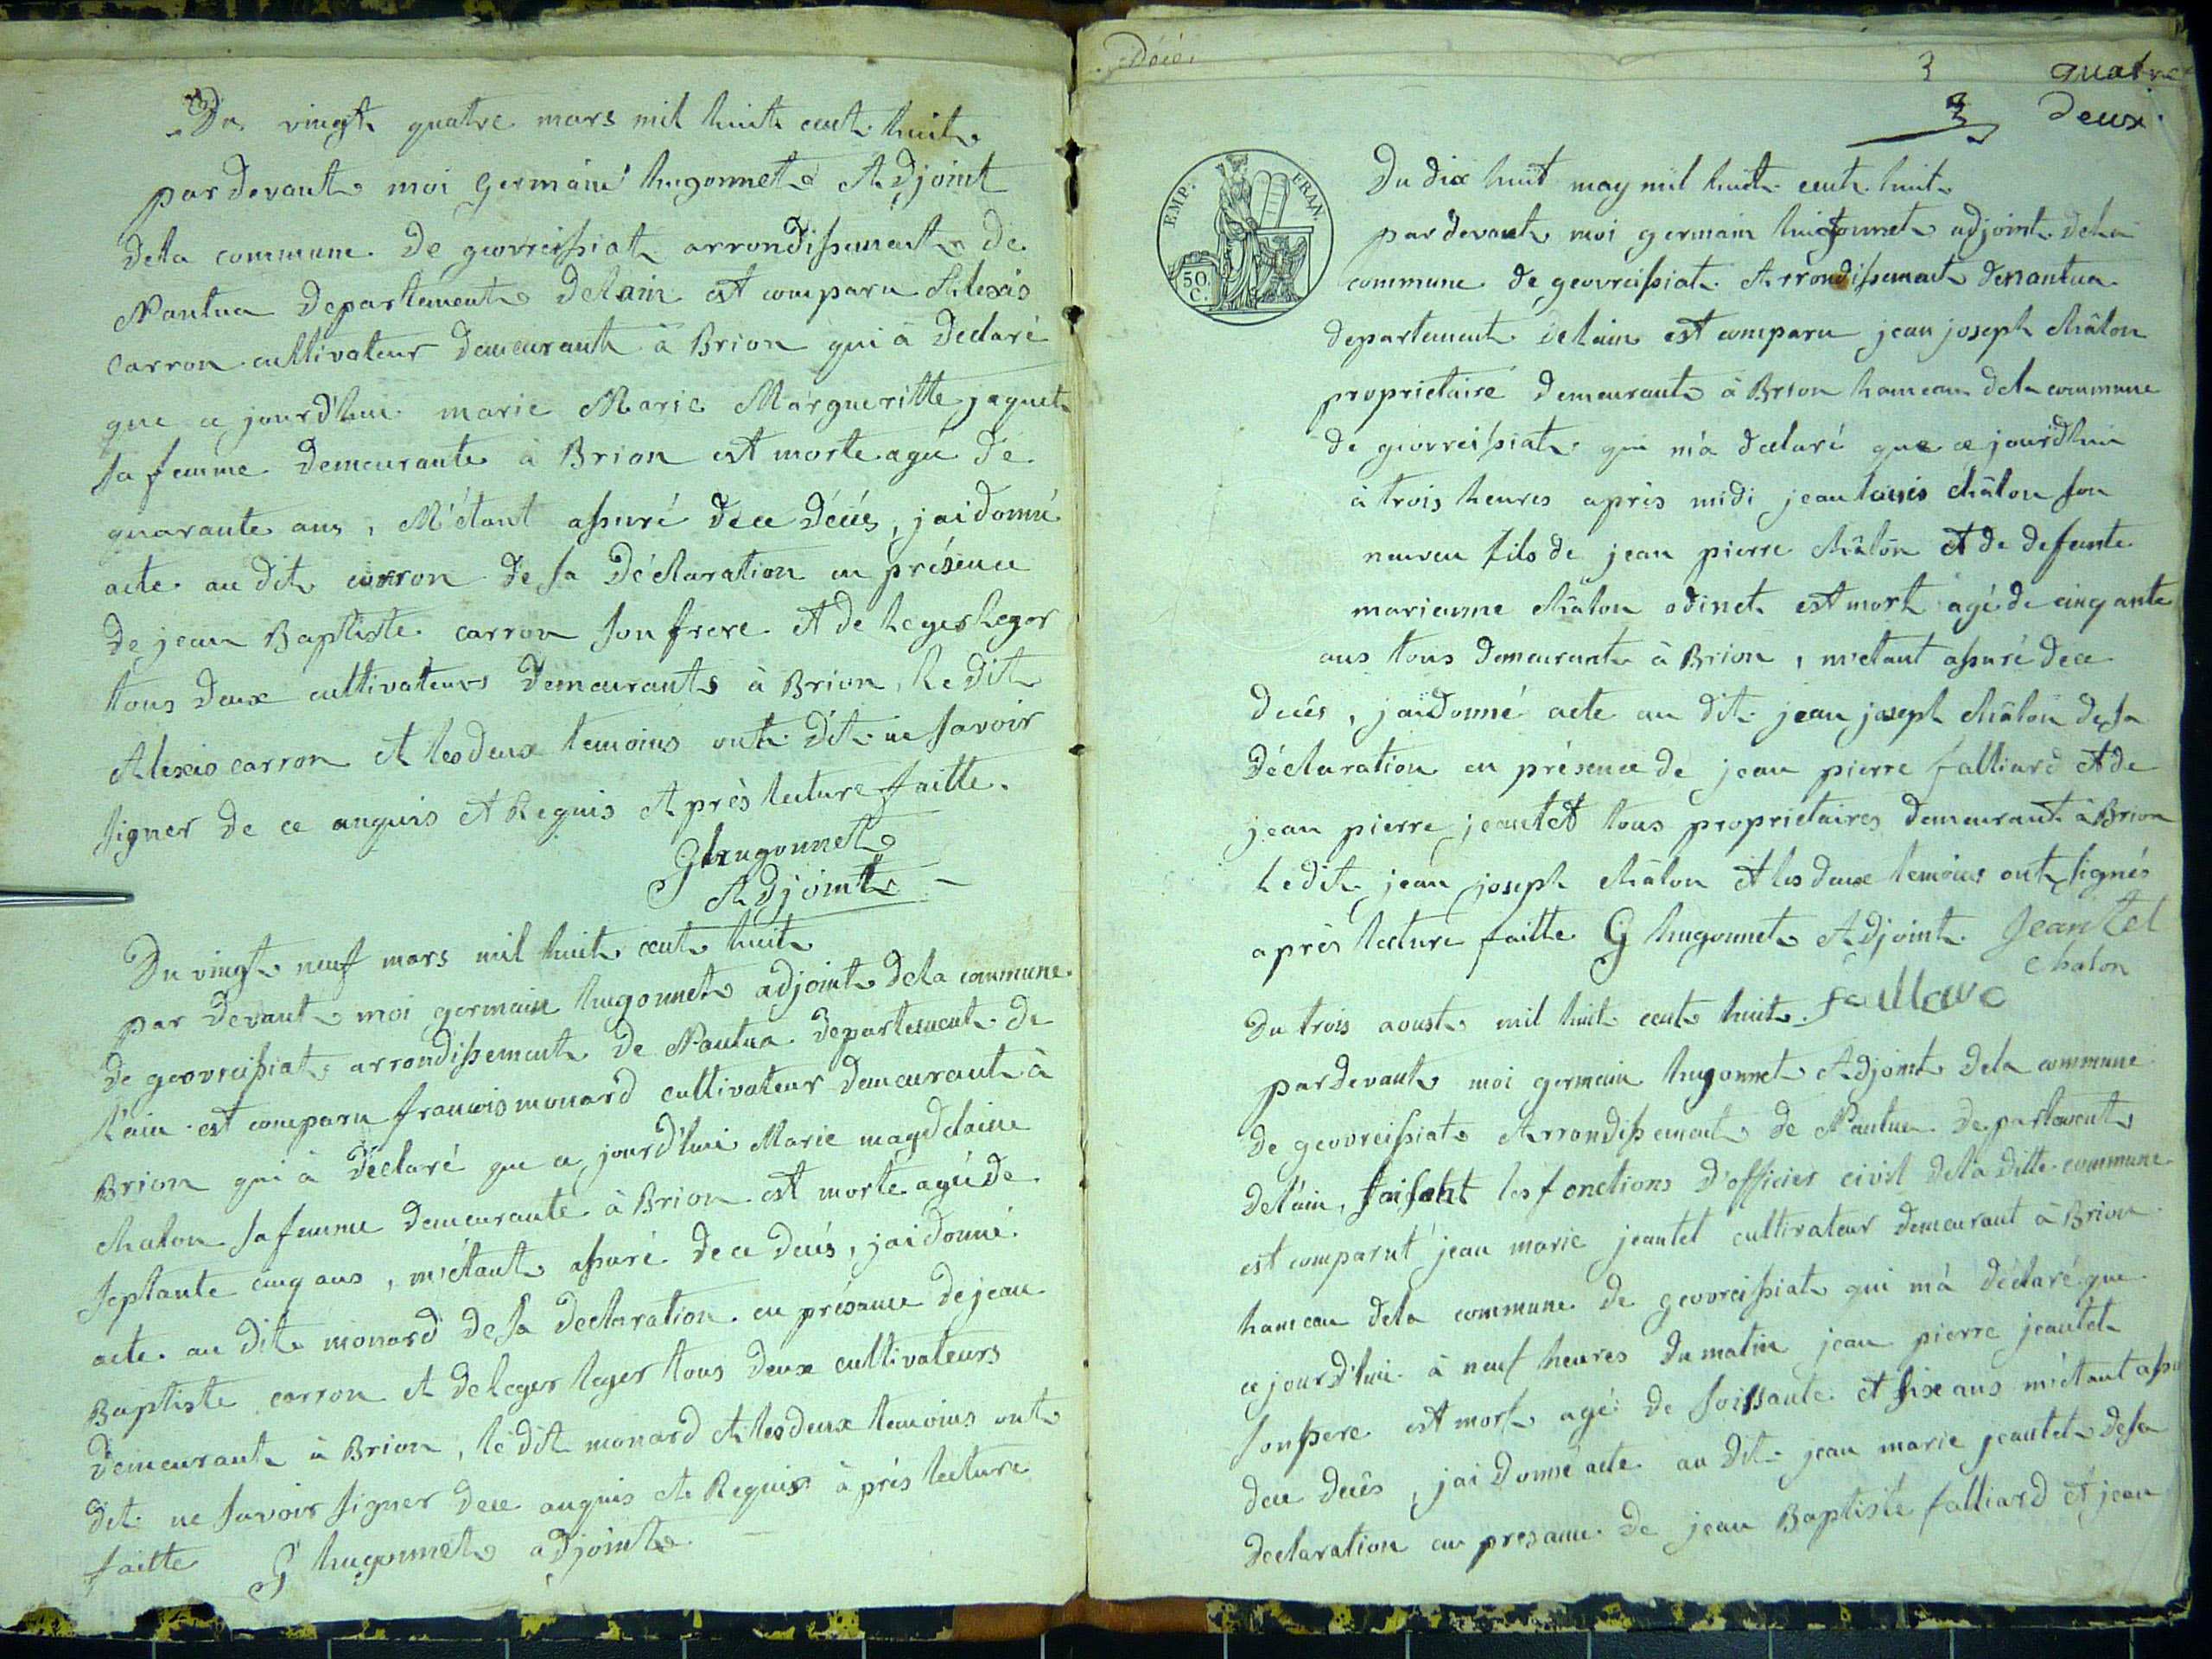 Du vingt quatre mars mil huit cent huit
par devant moi Germain hugonnet Adjoint
dela commune de geovreissiat arrondissement de
Nantua departement delain est comparu Alexis
Carron cultivateur demeurant à Brion qui à declaré
que ce jourd'hui marie Marie Margueritte jaquet
sa femme demeurante à Brion est morte agée de
quarante ans, M'étant assuré de ce décés, jai donné
acte au dit carron de sa déclaration en présence
de jean Baptiste carron son frere et de leger leger
tous deux cultivateurs demeurants à Brion, le dit
Alexis carron et les deux temoins ont dit ne savoir
signer de ce anquis et Requis Après lecture faitte.
G hugonnet
Adjoint
Du vingt neuf mars mil huit cent huit
par devant moi germain hugonnet adjoint dela commune
de geovreissiat arrondissement de Nantua departement de
l'ain est comparu francois monard cultivateur demeurant à
Brion qui à declaré que ce jourd'hui Marie magdelaine
chalon sa femme demeurante à Brion est morte agée de
septante cinq ans, m'étant assuré de ce decés, jai donné
acte au dit monard de sa declaration en présance de jean
Baptiste carron et de leger leger tous deux cultivateurs
demeurant à Brion, le dit monard et les deux temoins ont
dit ne savoir signer de ce anquis et Requis après lecture
faitte G hugonnet adjoint
3 quatre
3 deux
EMP. FRAN.
50 C.
Du dix huit may mil huit cent huit
par devant moi germain hugonnet adjoint dela
commune de geovreissiat Arrondissement denantua
departement delain est comparu jean joseph châlon
proprietaire demeurant à Brion hameau dela commune
de geovreissiat qui m'à declaré que ce jourd'hui
à trois heures après midi jean louis châlon son
neuveu fils de jean pierre châlon et de defunte
marienne châlon odinet est mort agé de cinqante
ans tous demeurant à Brion, m'étant assuré de ce
decés, jai donné acte au dit jean joseph châlon de sa
déclaration en présence de jean pierre falliard et de
jean pierre jeantet tous proprietaires demeurant à Brion
le dit jean joseph châlon et les deux temoins ont signés
après lecture faitte G hugonnet Adjoint Jeantet
chalon
Du trois aoust mil huit cent huit
par devant moi germain hugonnet Adjoint dela commune
de geovreissiat Arrondissement de Nantua departement
delain, faisant les fonctions d'officier civil dela ditte commune
est comparut jean marie jeantet cultivateur demeurant à Brion
hameau dela commune de geovreissiat qui m'à déclaré que
ce jourd'hui à neuf heures du matin jean pierre jeantet
son pere est mort agé de soissante et six ans m'étant assu
de ce decés, jai donné acte au dit jean marie jeantet de sa
declaration en presance de jean Baptiste falliard et jean